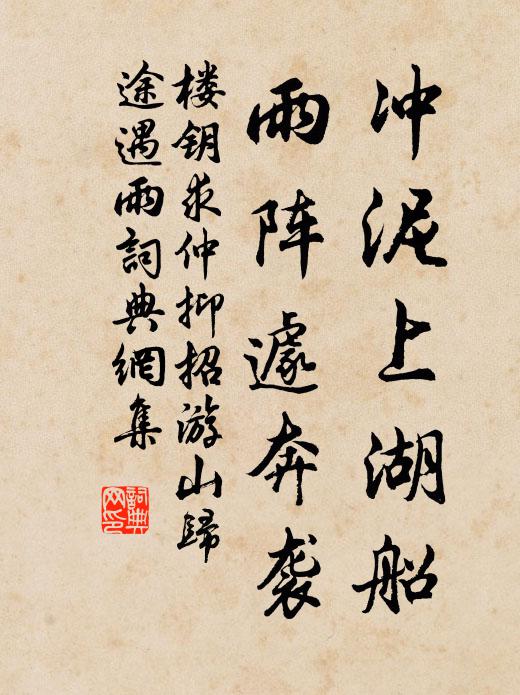 冲泥上湖船
雨阵遽奔袭
楼钥求仲抑招游山歸
途遇雨詞典網集
詞典
网印